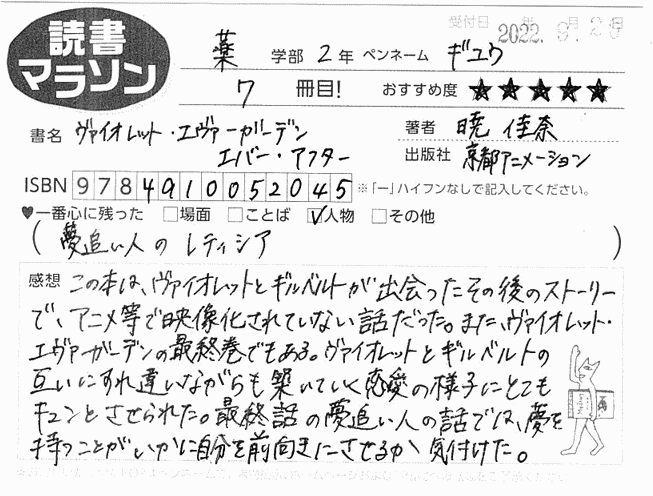 受付日 年 月 日
2022.
読書
マラソン
薬 学部 2 年 ペンネーム ギユウ
7 冊目! おすすめ度 ★★★★★
書名 ヴァイオレット・エヴァーガーデン
エバー・アフター
著者 暁 佳奈
出版社 京都アニメーション
ISBN 9784910052045 ※「ー」ハイフンなしで記入してください。
♥一番心に残った □場面 □ことば ☑人物 □その他
(夢追い人のレティシア)
感想 この本は、ヴァイオレットとギルベルトが出会ったその後のストーリー
で、アニメ等で映像化されていない話だった。また、ヴァイオレット・
エヴァーガーデンの最終巻でもある。ヴァイオレットとギルベルトの
互いにすれ違いながらも築いていく恋愛の様子にとても
キュンとさせられた。最終話の夢追い人の話では、夢を
持つことがいかに自分を前向きにさせるか気付けた。